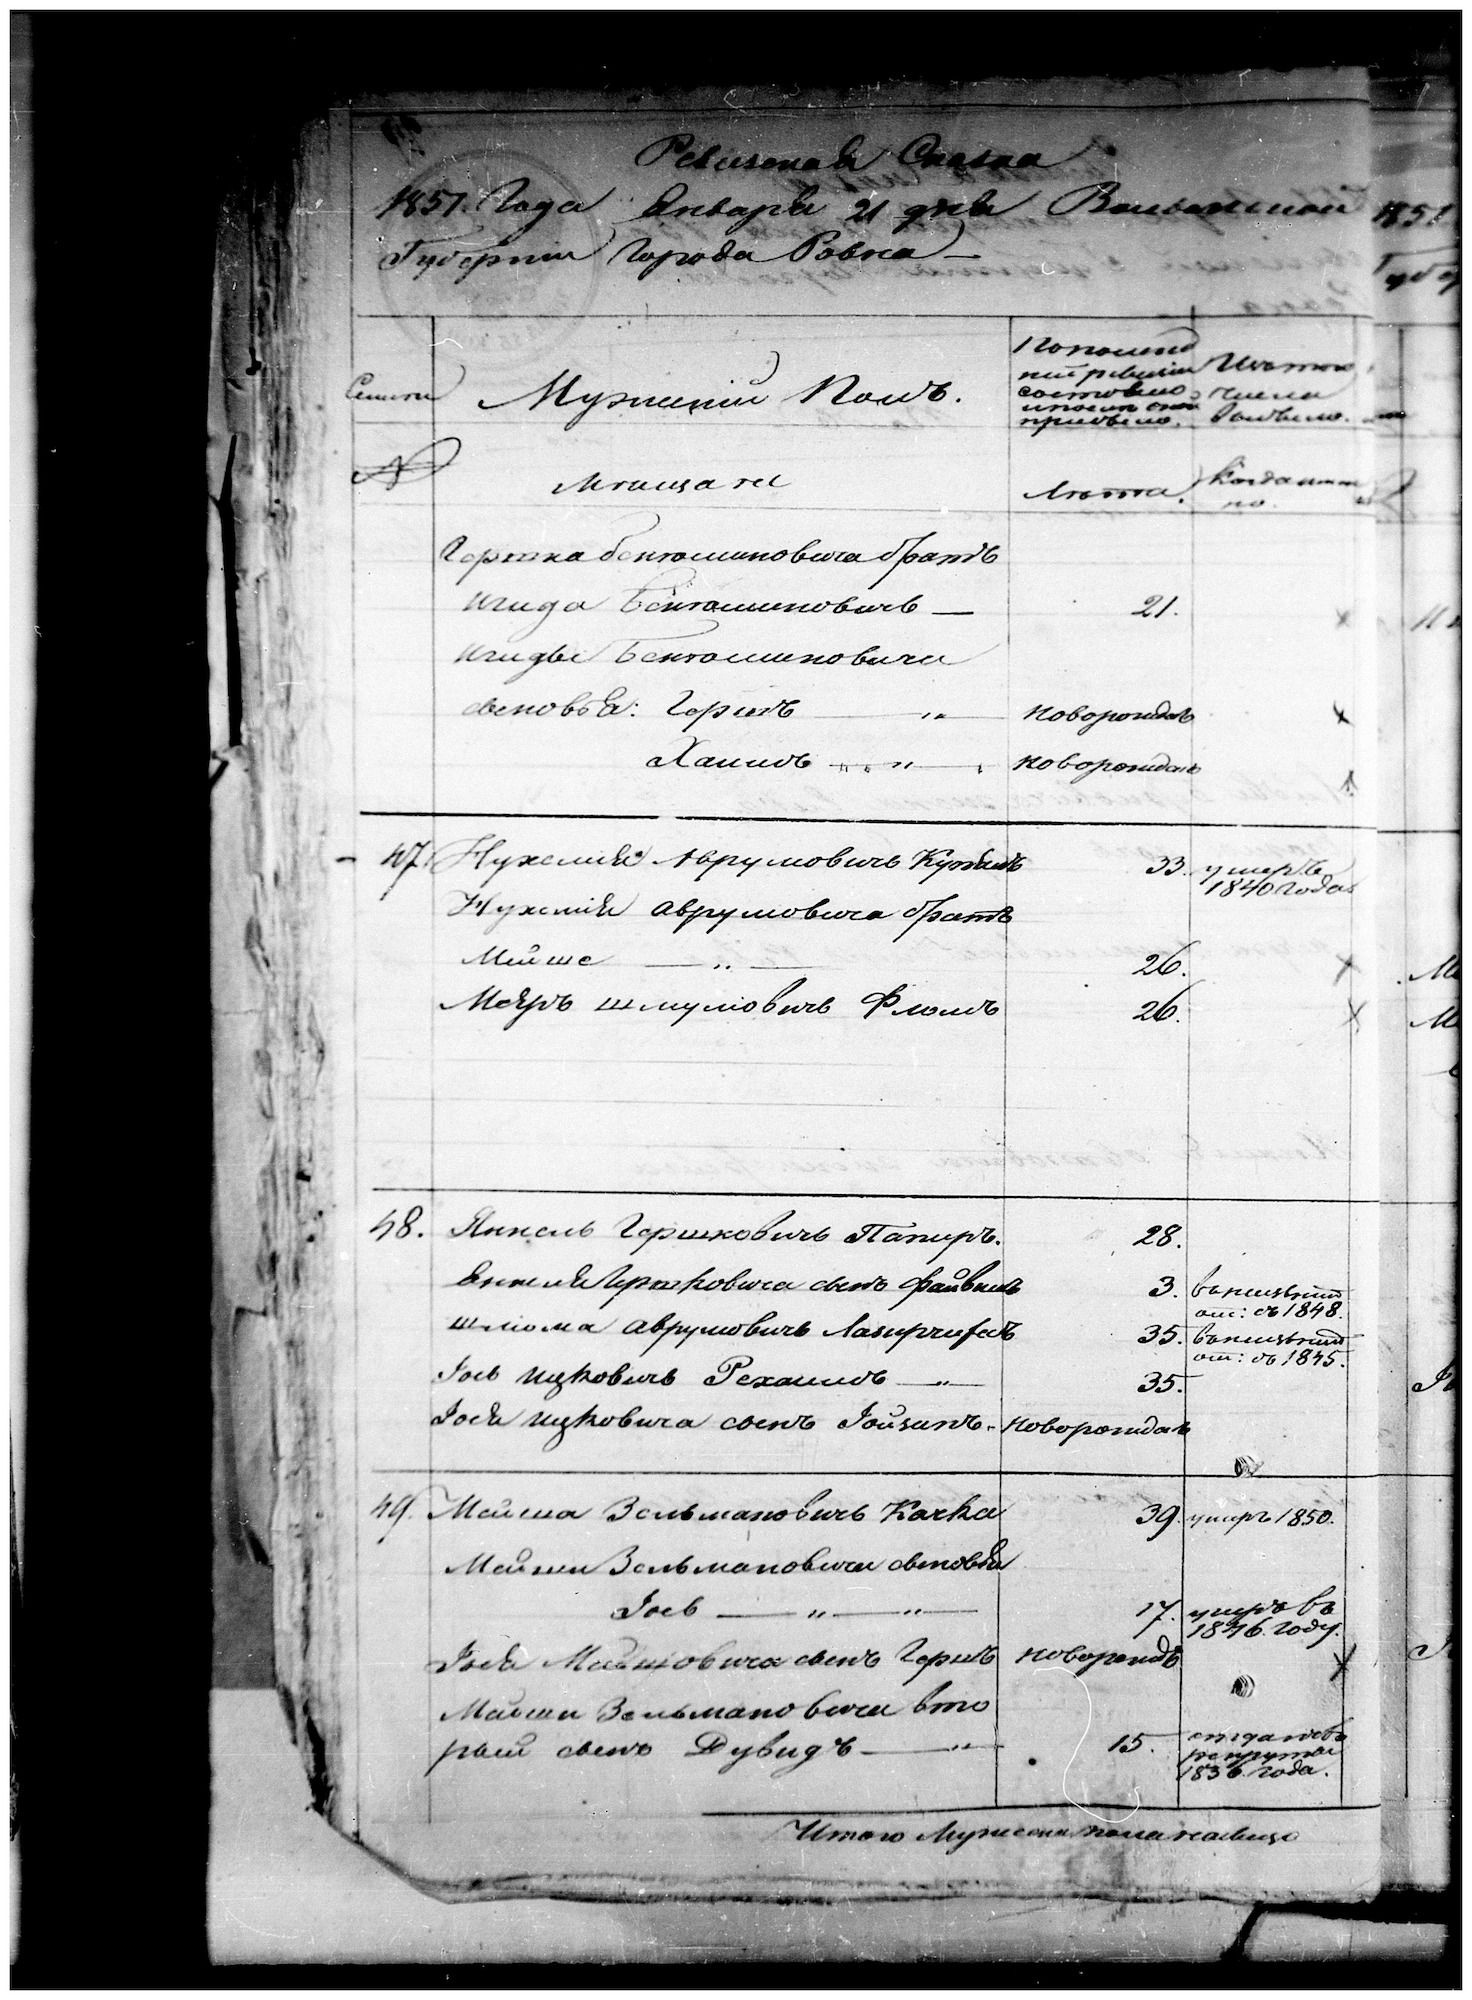 Ревизская Сказка
1851 Года Января 21 дня Волынской
Губернии Города Ровна
Семьи
Мужеский Полъ.
По последней ревизии состояло и после оной прибыло.
Изъ того числа выбыло.
№
Мещане
Лета.
Когда именно.
Гершка Бениоминовича братъ
Ицида Бениоминовичь — 21.
Ициды Бениоминовича
сыновья: Гершъ — " — новорождъ
Хаимъ — " — новорождъ
47. Нухемия Аврумовичь 33. умеръ 1840 года
Нухемия Аврумовича братъ
Мейше — " — 26.
Мееръ Шмуловичь Фломъ 26.
48. Янкель Гершковичь Папиръ. 28.
Янкеля Гершковича сынъ Файвишъ 3. въ неизвестной от: съ 1848.
Шлиома Аврумовичь 35. въ неизвестной от: съ 1845.
Iось Ицковичь Рехаимъ — " — 35.
Iося Ицковича сынъ Iойзипъ - новорождъ
49. Мейша Зельмановичь Качка 39. умеръ 1850.
Мейши Зельмановича сыновья
Iось — " — " — 17. умеръ въ 1846 году.
Iося Мейшовича сынъ Гершъ новорождъ
Мейши Зельмановича вто
рый сынъ Дувидъ — " — 15. отданъ въ рекруты 1836 года.
Итого Мужеска пола налицо